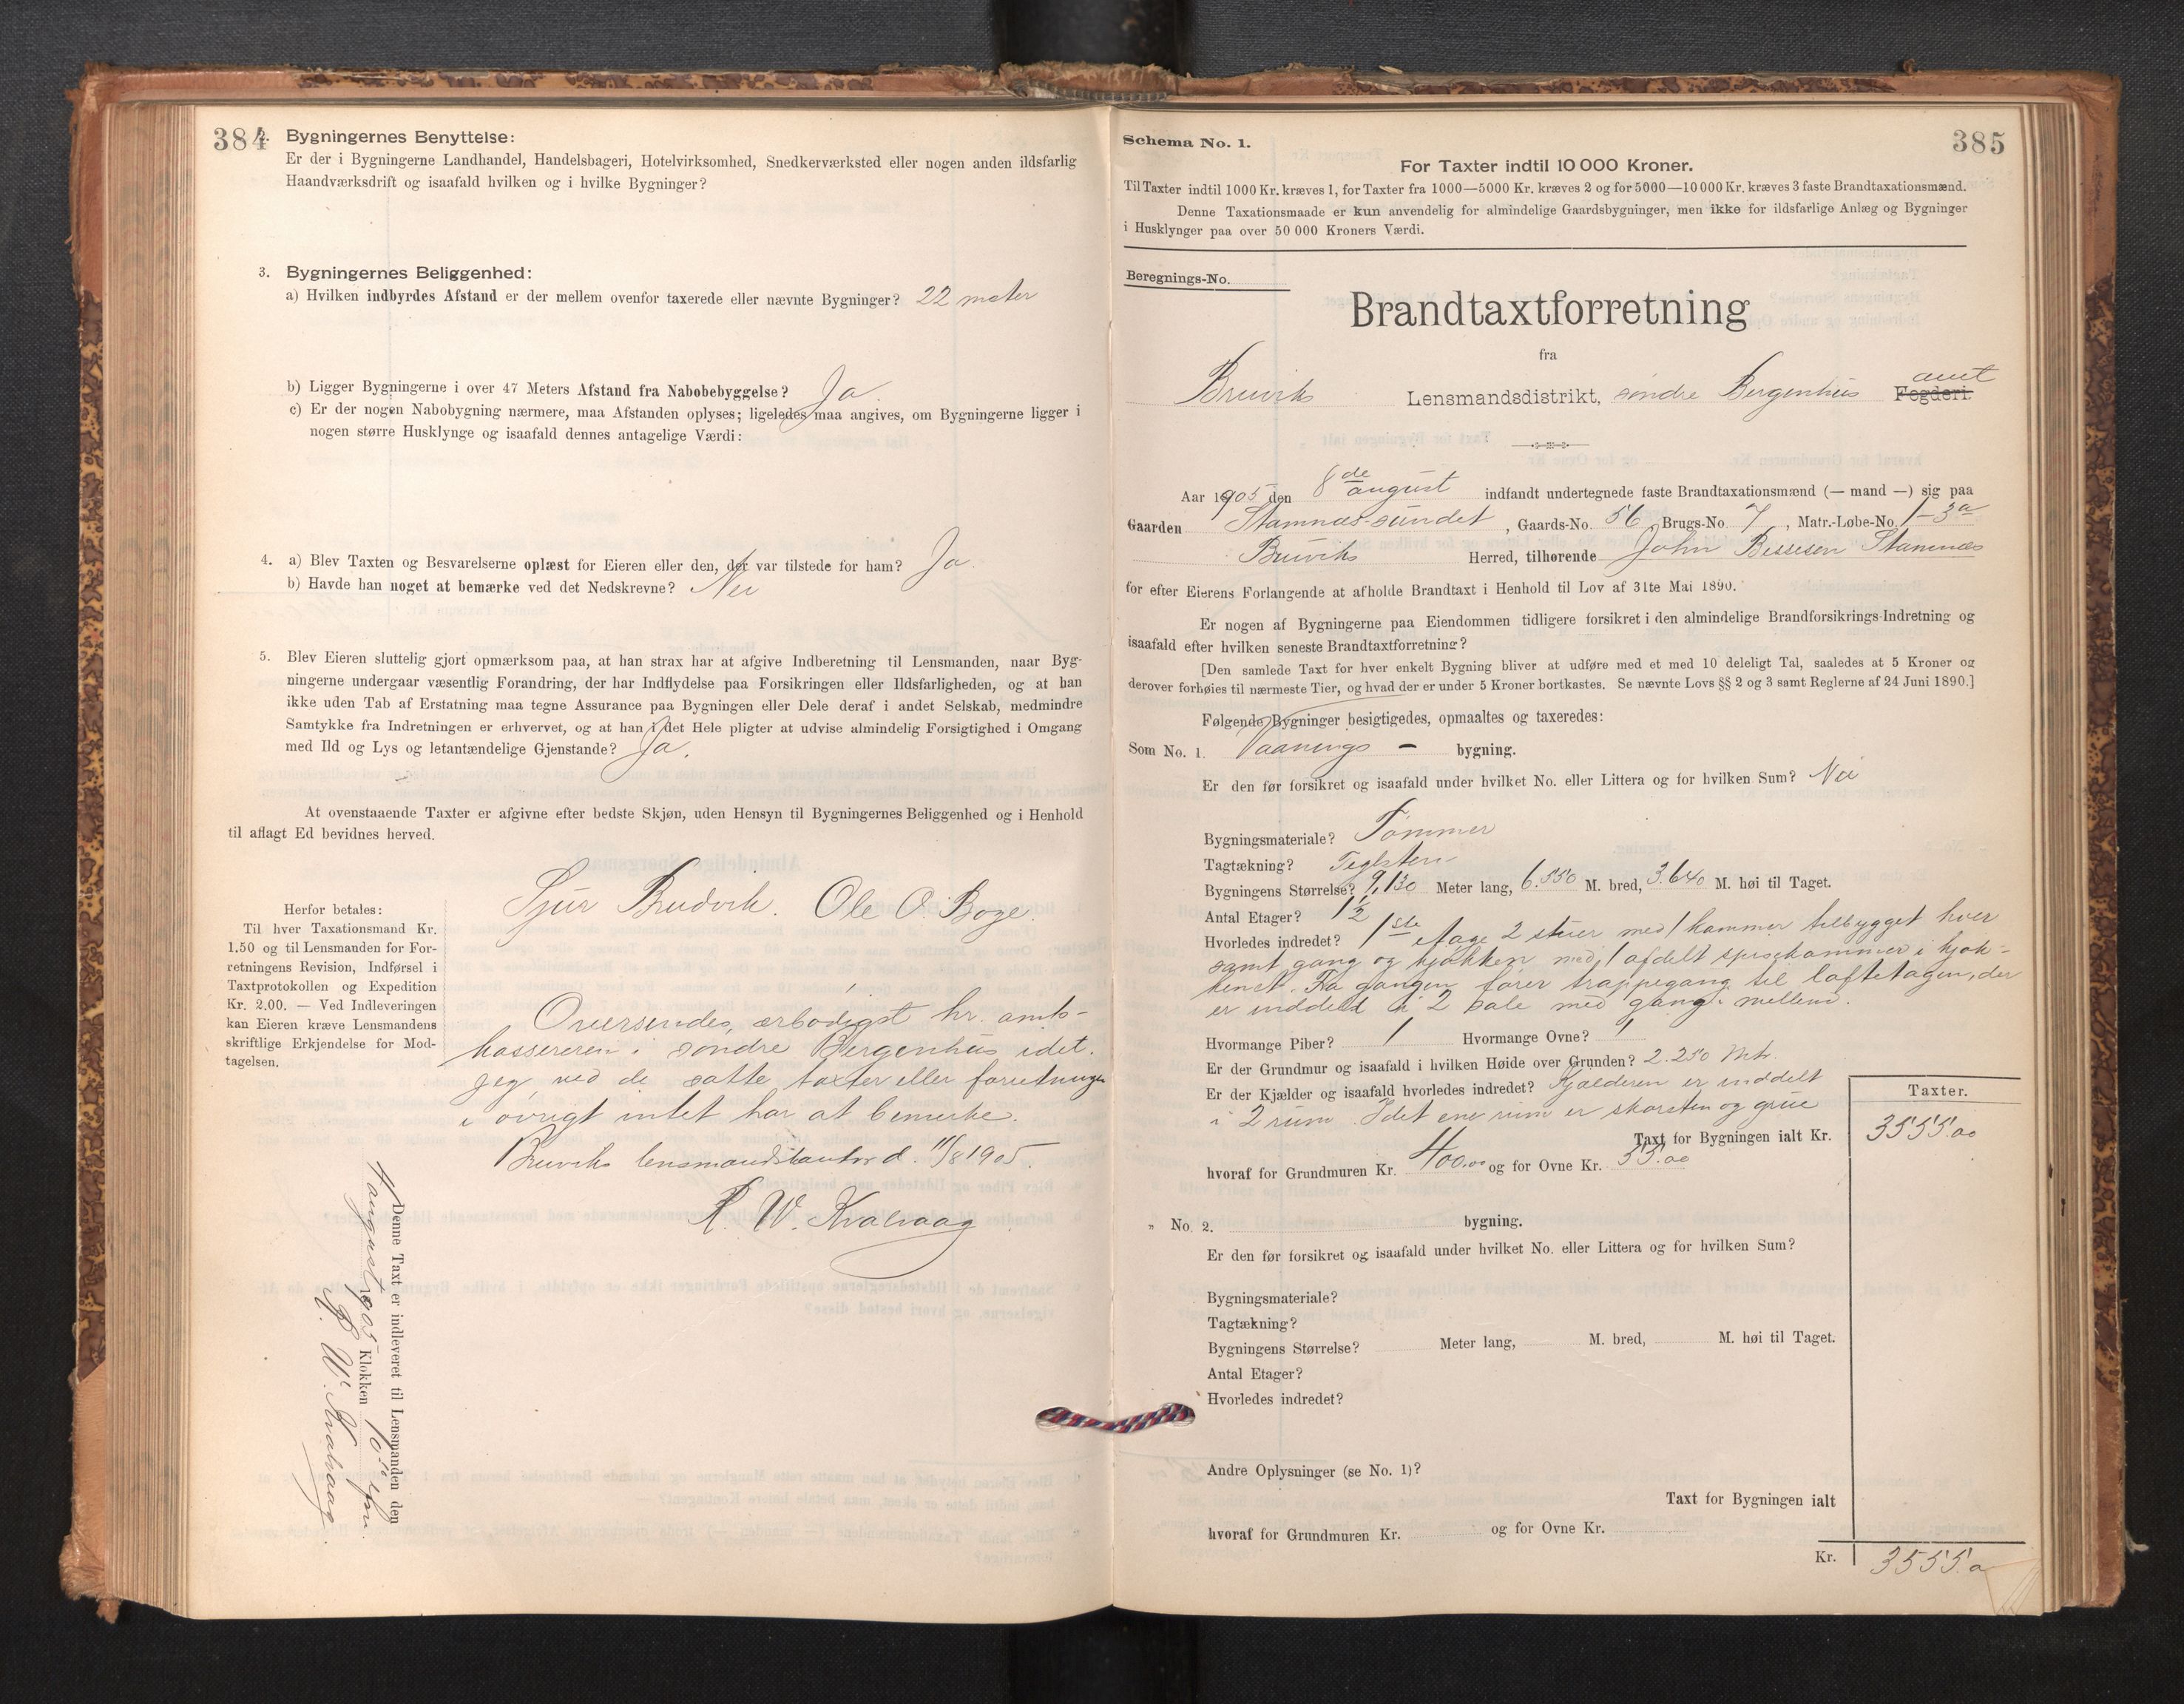 384
2. Bygningernes Benyttelse:
Er der i Bygningerne Landhandel, Handelsbageri, Hotelvirksomhed, Snedkerværksted eller nogen anden ildsfarlig
Haandværksdrift og isaafald hvilken og i hvilke Bygninger?
3. Bygningernes Beliggenhed:
a) Hvilken indbyrdes Afstand er der mellem ovenfor taxerede eller nævnte Bygninger? 22 meter
b) Ligger Bygningerne i over 47 Meters Afstand fra Nabobebyggelse? Ja.
c) Er der nogen Nabobygning nærmere, maa Afstanden oplyses; ligeledes maa angives, om Bygningerne ligger i
nogen større Husklynge og isaafald dennes antagelige Værdi:
4. a) Blev Taxten og Besvarelserne oplæst for Eieren eller den, der var tilstede for ham? Ja.
b) Havde han noget at bemærke ved det Nedskrevne? Nei
5. Blev Eieren sluttelig gjort opmærksom paa, at han strax har at afgive Indberetning til Lensmanden, naar Byg-
ningerne undergaar væsentlig Forandring, der har Indflydelse paa Forsikringen eller Ildsfarligheden, og at han
ikke uden Tab af Erstatning maa tegne Assurance paa Bygningen eller Dele deraf i andet Selskab, medmindre
Samtykke fra Indretningen er erhvervet, og at han i det Hele pligter at udvise almindelig Forsigtighed i Omgang
med Ild og Lys og letantændelige Gjenstande? Ja.
At ovenstaaende Taxter er afgivne efter bedste Skjøn, uden Hensyn til Bygningernes Beliggenhed og i Henhold
til aflagt Ed bevidnes herved.
Sjur Brudvik. Ole O. Boge.
Herfor betales:
Til hver Taxationsmand Kr.
1.50 og til Lensmanden for For-
retningens Revision, Indførsel i
Taxtprotokollen og Expedition
Kr. 2.00. — Ved Indleveringen
kan Eieren kræve Lensmandens
skriftlige Erkjendelse for Mod-
tagelsen.
Oversendes, ærbødigst hr. amts-
kassereren i søndre Bergenhus idet
jeg ved de satte taxter eller forretningen
i øvrigt intet har at bemerke.
Bruviks lensmandskontor d. 11/8 1905.
R. W. Kvalvaag
Denne Taxt er indleveret til Lensmanden den
august 1905 Klokken 10 fm.
R. W. Kvalvaag
385
Schema No. 1.
For Taxter indtil 10 000 Kroner.
Til Taxter indtil 1000 Kr. kræves 1, for Taxter fra 1000—5000 Kr. kræves 2 og for 5000—10 000 Kr. kræves 3 faste Brandtaxationsmænd.
Denne Taxationsmaade er kun anvendelig for almindelige Gaardsbygninger, men ikke for ildsfarlige Anlæg og Bygninger
i Husklynger paa over 50 000 Kroners Værdi.
Beregnings-No.
Brandtaxtforretning
fra
Bruviks Lensmandsdistrikt, søndre Bergenhus amt Fogderi.
Aar 1905 den 8de august indfandt undertegnede faste Brandtaxationsmænd (— mand —) sig paa
Gaarden Stamnæs-sundet, Gaards-No. 56 Brugs-No. 7, Matr.-Løbe-No. 1-3a
Bruviks Herred, tilhørende John Bessesen Stamnæs
for efter Eierens Forlangende at afholde Brandtaxt i Henhold til Lov af 31te Mai 1890.
Er nogen af Bygningerne paa Eiendommen tidligere forsikret i den almindelige Brandforsikrings-Indretning og
isaafald efter hvilken seneste Brandtaxtforretning?
[Den samlede Taxt for hver enkelt Bygning bliver at udføre med et med 10 deleligt Tal, saaledes at 5 Kroner og
derover forhøies til nærmeste Tier, og hvad der er under 5 Kroner bortkastes. Se nævnte Lovs §§ 2 og 3 samt Reglerne af 24 Juni 1890.]
Følgende Bygninger besigtigedes, opmaaltes og taxeredes:
Som No. 1. Vaanings - bygning.
Er den før forsikret og isaafald under hvilket No. eller Littera og for hvilken Sum? Nei
Bygningsmateriale? Tømmer
Tagtækning? Teglsten
Bygningens Størrelse? 9,130 Meter lang, 6.550 M. bred, 3.640 M. høi til Taget.
Antal Etager? 1½
Hvorledes indredet? 1ste etage 2 stuer med 1 kammer tilbygget hver
samt gang og kjøkken med 1 afdelt spisekammer i kjøk-
kenet. Fra gangen fører trappegang til loftetagen, der
er inddeld i 2 sale med gang i mellem.
Hvormange Piber? 1 Hvormange Ovne? 1
Er der Grundmur og isaafald i hvilken Høide over Grunden? 2.250 Mtr.
Er der Kjælder og isaafald hvorledes indredet? Kjælderen er inddelt
i 2 rum. I det ene rum er skorsten og grue
Taxter.
Taxt for Bygningen ialt Kr. 3555.00
hvoraf for Grundmuren Kr. 400.00 og for Ovne Kr. 55.00
„ No. 2. bygning.
Er den før forsikret og isaafald under hvilket No. eller Littera og for hvilken Sum?
Bygningsmateriale?
Tagtækning?
Bygningens Størrelse? Meter lang, M. bred, M. høi til Taget.
Antal Etager?
Hvorledes indredet?
Andre Oplysninger (se No. 1)?
Taxt for Bygningen ialt
hvoraf for Grundmuren Kr. og for Ovne Kr.
Kr. 3555.